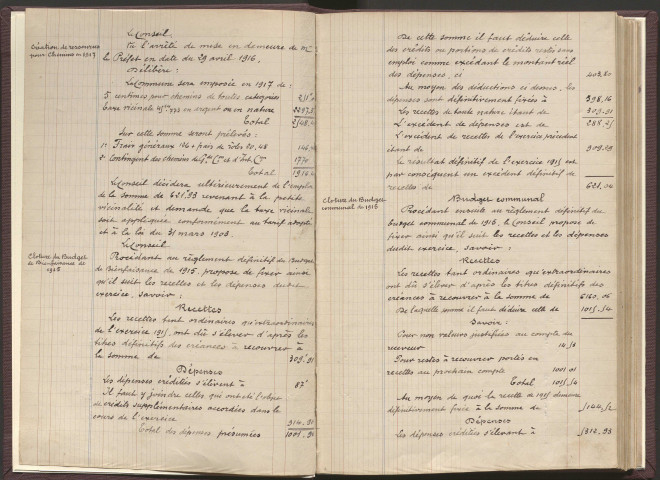 Création de ressources
pour Chemins en 1917
Le Conseil
Vu l'arrêté de mise en demeure de M.
le Préfet en date du 29 avril 1916.
Délibère :
La Commune sera imposée en 1917 de :
5 centimes pour chemins de toutes catégories
Taxe vicinale en argent ou en nature
Total
Sur cette somme seront prélevés :
1° Frais généraux
2° Contingent des chemins de
Total
Le Conseil décidera ultérieurement de l'emploi
de la somme de 621,93 revenant à la petite
vicinalité et demande que la taxe vicinale
soit appliquée conformément au tarif adopté
et à la loi du 31 mars 1903.
Cloture du Budget
de Bienfaisance de
1915
Le Conseil
Procédant au règlement définitif du Budget
de Bienfaisance de 1915, propose de fixer ainsi
qu'il suit les recettes et les dépenses dudit
exercice, savoir :
Recettes
Les recettes tant ordinaires qu'extraordinaires
de l'exercice 1915, ont dû s'élever d'après les
titres définitifs des créances à recouvrer à
la somme de 309f 91
Dépenses
Les dépenses créditées s'élèvent à 87f
Il faut y joindre celles qui ont été l'objet
de crédits supplémentaires accordées dans le
cours de l'exercice 914.96
Total des dépenses présumées 1001.96
De cette somme il faut déduire celle
des crédits ou portions de crédits restés sans
emploi comme excédant le montant réel
des dépenses, ci 403.80
Au moyen des déductions ci dessus, les
dépenses sont définitivement fixées à 598.16
Les recettes de toute nature étant de 309.91
L'excédent de dépenses est de 288.25
L'excédent de recettes de l'exercice précédent
étant de 909.29
le résultat définitif de l'exercice 1915 est
par conséquent un excédent définitif de
recettes de 621.04
Cloture du Budget
communal de 1915
Budget communal
Procédant ensuite au règlement définitif du
budget communal de 1915, le Conseil propose de
fixer ainsi qu'il suit les recettes et les dépenses
dudit exercice, savoir :
Recettes
Les recettes tant ordinaires qu'extraordinaires
ont dû s'élever d'après les titres définitifs des
créances à recouvrer à la somme de 6160.06
De laquelle somme il faut déduire celle de 1015.54
Savoir :
Pour non valeurs justifiées au compte du
receveur
Pour restes à recouvrer portés en
recettes au prochain compte 1001.01
Total 1015.54
Au moyen de quoi la recette de 1915 demeure
définitivement fixée à la somme de 5144.52
Dépenses
Les dépenses créditées s'élevant à 5312.95